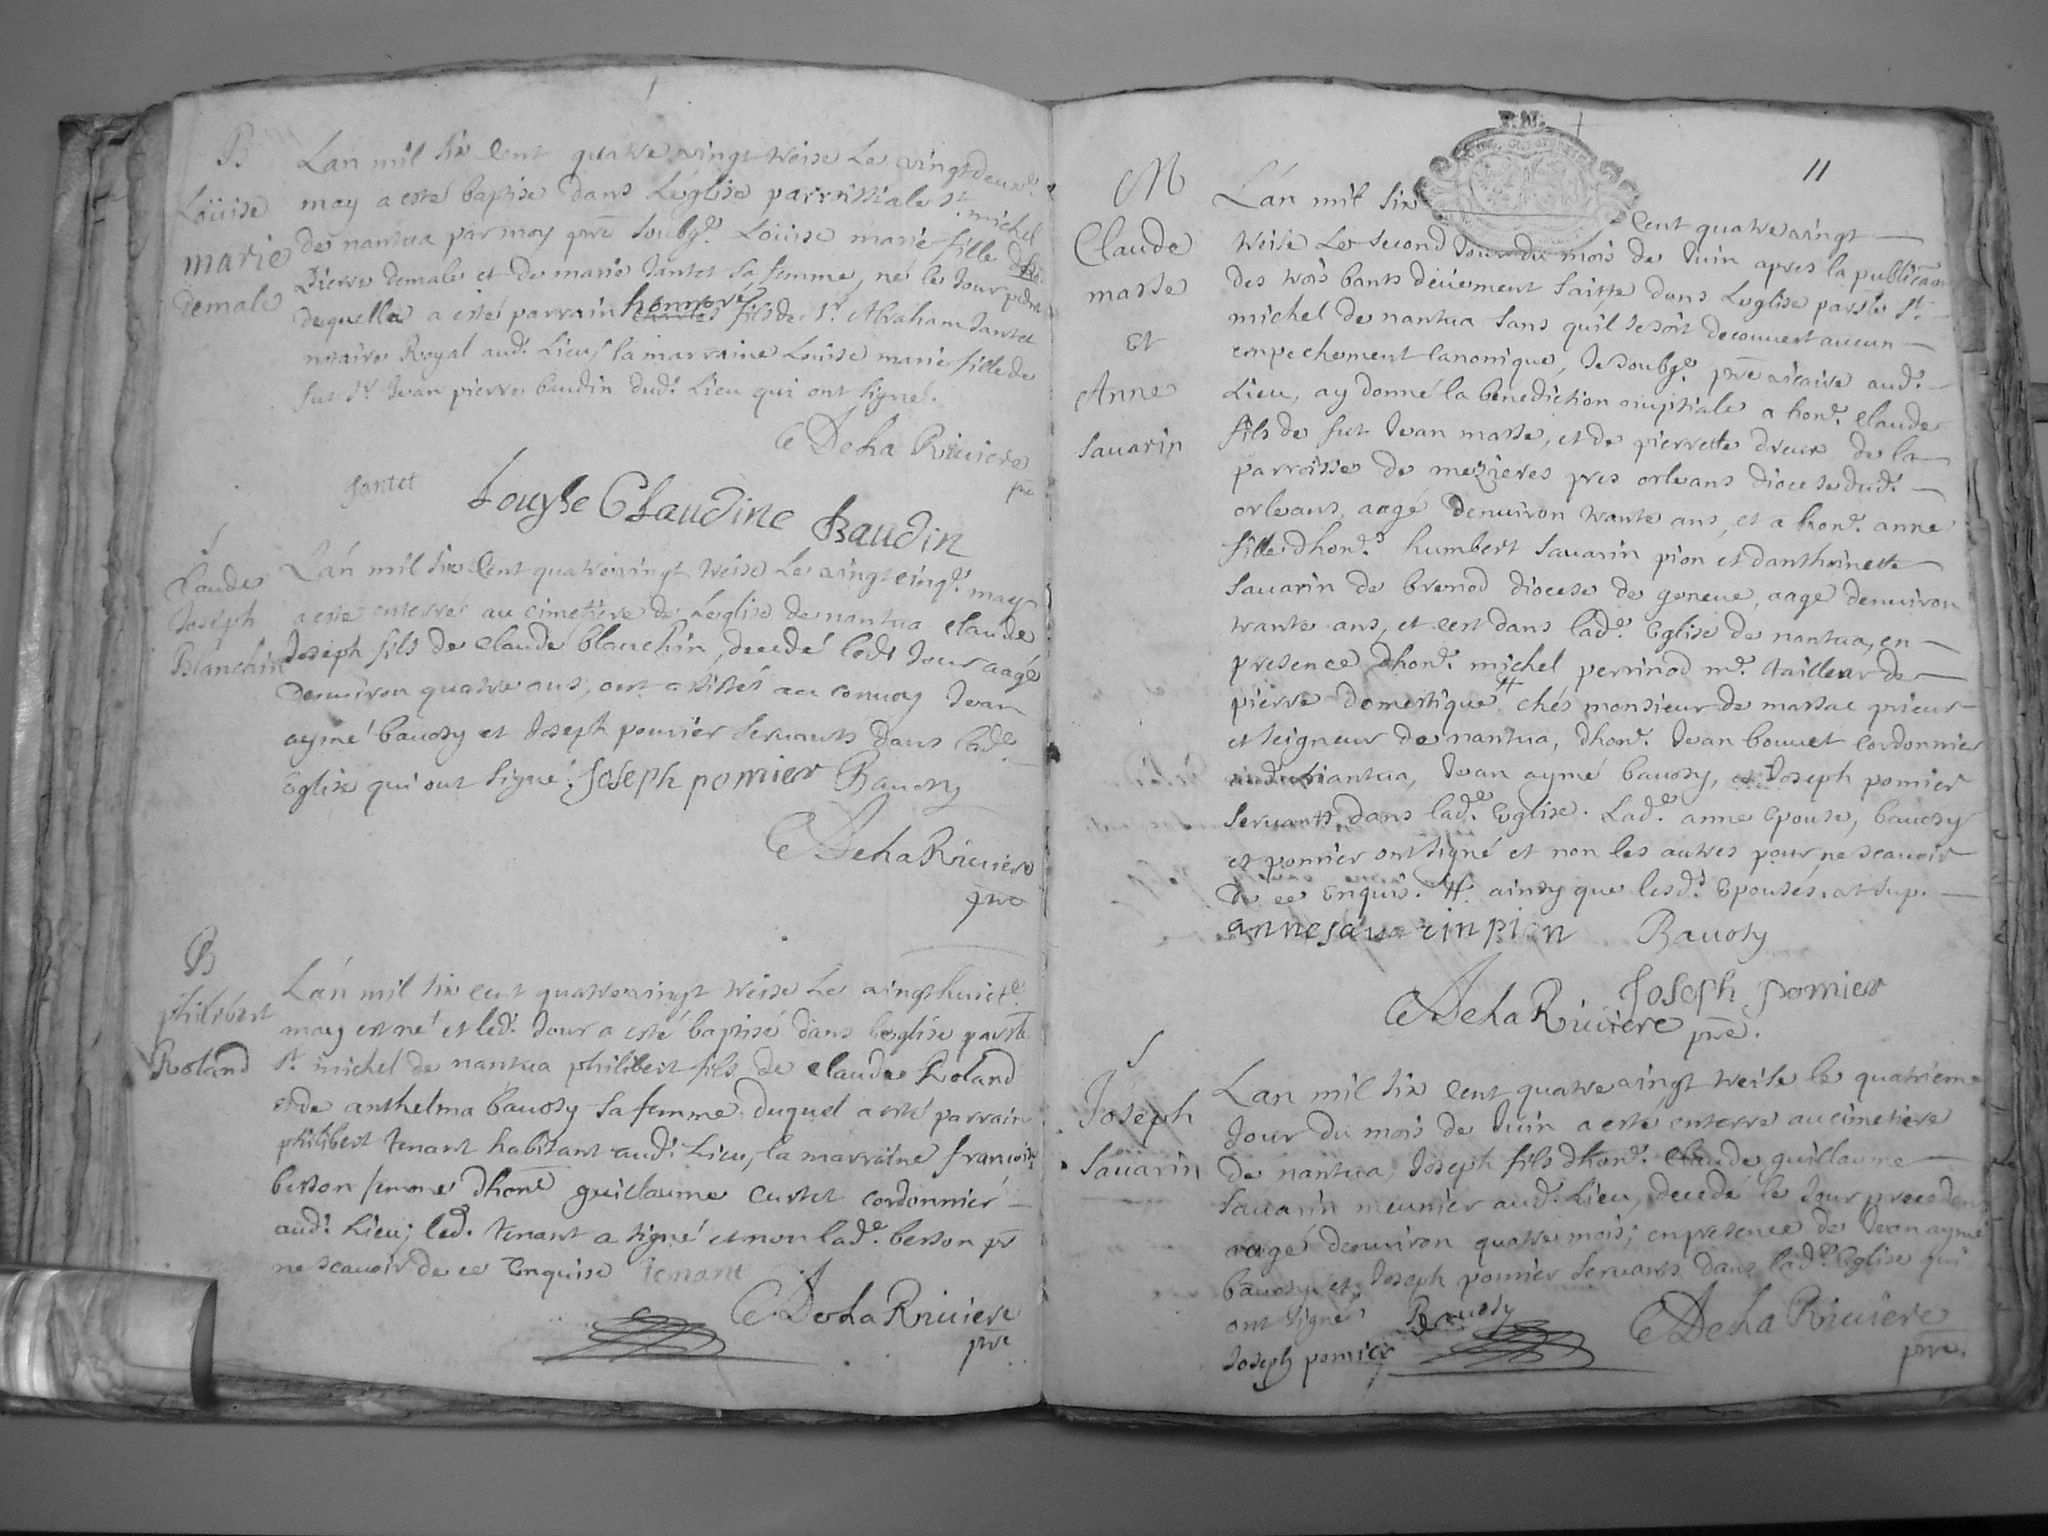 B
Louise
marie
Demale
Lan mil six Cent quatre vingt treise Le vingtdeux.e
may a esté baptisé dans Léglise parroissiale S.t michel
de nantua par moy pr̄e soubg.é Louise marie fille de
Pierre Demale et de marie Jantet sa femme, né le Jour
dequelle a esté parrain honnoré fils de S.r Abraham Jantet
notaire Royal aud.t Lieu, la marraine Louise marie fille de
fut S.r Jean pierre baudin dud.t Lieu qui ont signé.
DeLa Riviere
pr̄e
Jantet
Louyse Claudine Baudin
S
Claude
Joseph
Blanchin
Lán mil six Cent quatre vingt treise Le vingtcinq.e may
a esté enterré au cimetiere de Leglise de nantua claude
Joseph fils de Claude blanchin, decedé led.t Jour aagé
Denviron quatre ans, ont assistés au convoy Jean
aymé bauosy et Joseph pomier servants dans lad.e
Eglise qui ont signé. Joseph pomier Bauosy
DeLaRiviere
pr̄e
B
philibert
Roland
Lán mil six cent quatrevingt treise Le vingthuict.e
may est né et led.t Jour a esté baptisé dans leglise parsle
S.t michel de nantua philibert fils de claude Roland
et de anthelma bauosy sa femme. duquel a esté parrain
philibert tenant habitant aud.t Lieu, la marraine francoise
berson femme dhon.e guillaume curtet cordonnier
aud.t Lieu; led. tenant a signé et non lad.e berson p.r
ne scavoir de ce Enquise tenant
DeLaRiviere
pr̄e
11
M
Claude
masse
Et
Anne
Savarin
Lán mil six Cent quatre vingt
treise Le second Jour du mois de Juin apres la publicaōn
des trois bants deüement faitte dans Leglise parsle S.t
michel de nantua sans quil se soit decouvert aucun
empechement canonique, Je soubg.é pr̄e vicaire aud.t
Lieu, ay donné la benediction nuptiale a hon.e claude
fils de fut Jean masse, et de pierrette dreux de la
parroisse de mezieres pres orleans diocese dud.t
orleans, aagé denviron trante ans, et a hon.e anne
fille dhon.e humbert Savarin pion et danthoinette
Savarin de brenod diocese de geneve, aage denviron
trante ans, et cest dans lad.e Eglise de nantua, en
presence dhon.e michel perrinod m.e tailleur de
pierre Domestique # chés monsieur de massac prieur
et seigneur de nantua, dhon.e Jean bouvet cordonnier
nantua, Jean aymé bauosy, et Joseph pomier
servants dans lad.e Eglise. Lad.e anne Epouse, bauosy
et pomier ont signé et non les autres pour ne scavoir
de ce Enquis. #. ainsy que lesd.s Epousés.
anne savarin pion Bauosy
Joseph pomier
DeLaRiviere
pr̄e.
S
Joseph
Savarin
Lan mil six Cent quatre vingt treise le quatrieme
Jour du mois de Juin a esté enterré au cimetiere
de nantua, Joseph fils dhon.e Claude guillaume
Savarin meunier aud.t Lieu, decedé le Jour precedent
aagé denviron quatre mois; en presence de Jean aymé
bauosy et Joseph pomier servants dans lad.e Eglise qui
ont signé Bauosy
Joseph pomier
DeLa Riviere
pr̄e.